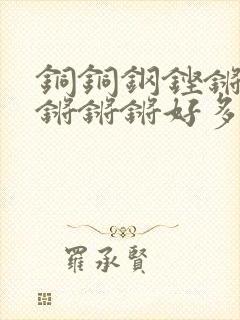 銅銅鋼鏗鏘
鏘鏘鏘好多
羅承賢